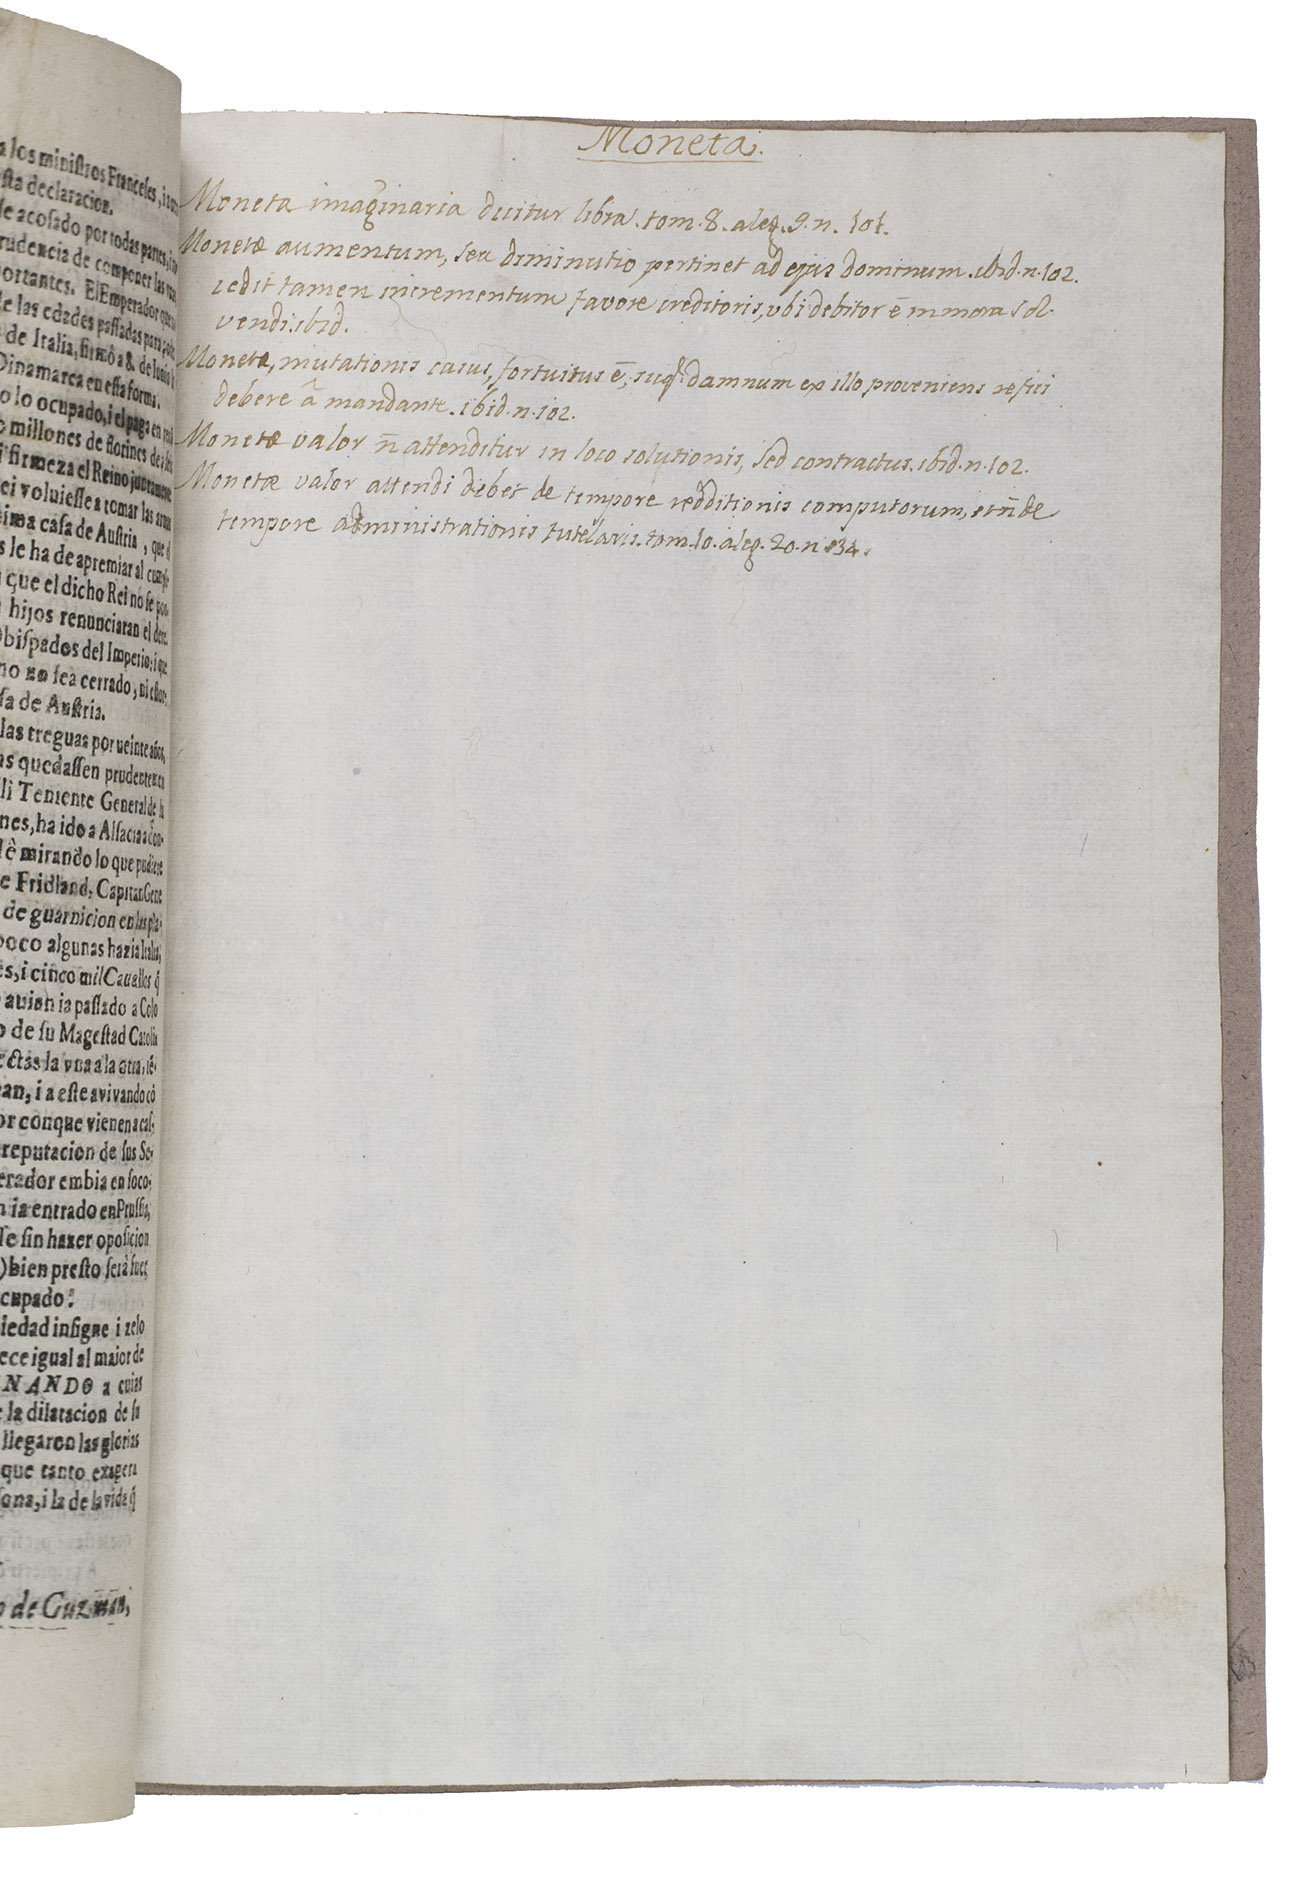 a los ministros Franceses, i a
sta declaracion.
se acosado por todas partes, i
rudencia de componer las
portantes. El Emperador que
e las edades passadas para
de Italia, firmò a 8. de Iunio
Dinamarca en essa forma.
o lo ocupado, i el paga en
o millones de florines de
i firmeza el Reino juntamente
ei voluiesse a tomar las armas
ima casa de Austria, que
s le ha de apremiar al
que el dicho Rei no se
hijos renunciaran el
bispados del Imperio: i que
no no sea cerrado, ni
sa de Austria.
las treguas por ueinte años,
as quedassen
li Teniente General de la
nes, ha ido a Alsacia a
è mirando lo que pudiere
e Fridland, Capitan Gene
de guarnicion en las pla-
poco algunas hazia Italia;
es, i cinco mil Cauallos q̃
auian ia passado a Colo
o de su Magestad Catoli
ectas la vna a la otra, sê-
an, i a este avivando cõ
or conque vienen a cas-
reputacion de sus Se-
erador embia en soco-
n ia entrado en Prussia,
se sin hazer oposicion
) bien presto serà
cupado.
iedad insigne i zelo
ece igual al maior de
NANDO a cuias
e la dilatacion de su
llegaron las glorias
que tanto exagera
sona, i la de la vida q̃
o de Guzman,
Moneta.
Moneta imaginaria dicitur libra. tom. 8. aleg. 9. n. 101.
Monetæ aumentum, seu diminutio pertinet ad ejus dominum. ibid. n. 102.
cedit tamen incrementum favore creditoris, vbi debitor ē in mora sol-
vendi. ibid.
Monetæ, mutationis casus, fortuitus ē, damnum ex illo proveniens refici
debere â mandante. ibid. n. 102.
Monetæ valor ñ attenditur in loco solutionis, sed contractus. ibid. n. 102.
Monetæ valor attendi debet de tempore redditionis computorum, et ñ de
tempore administrationis tutelaris. tom. 10. aleg. 20. n. 34.